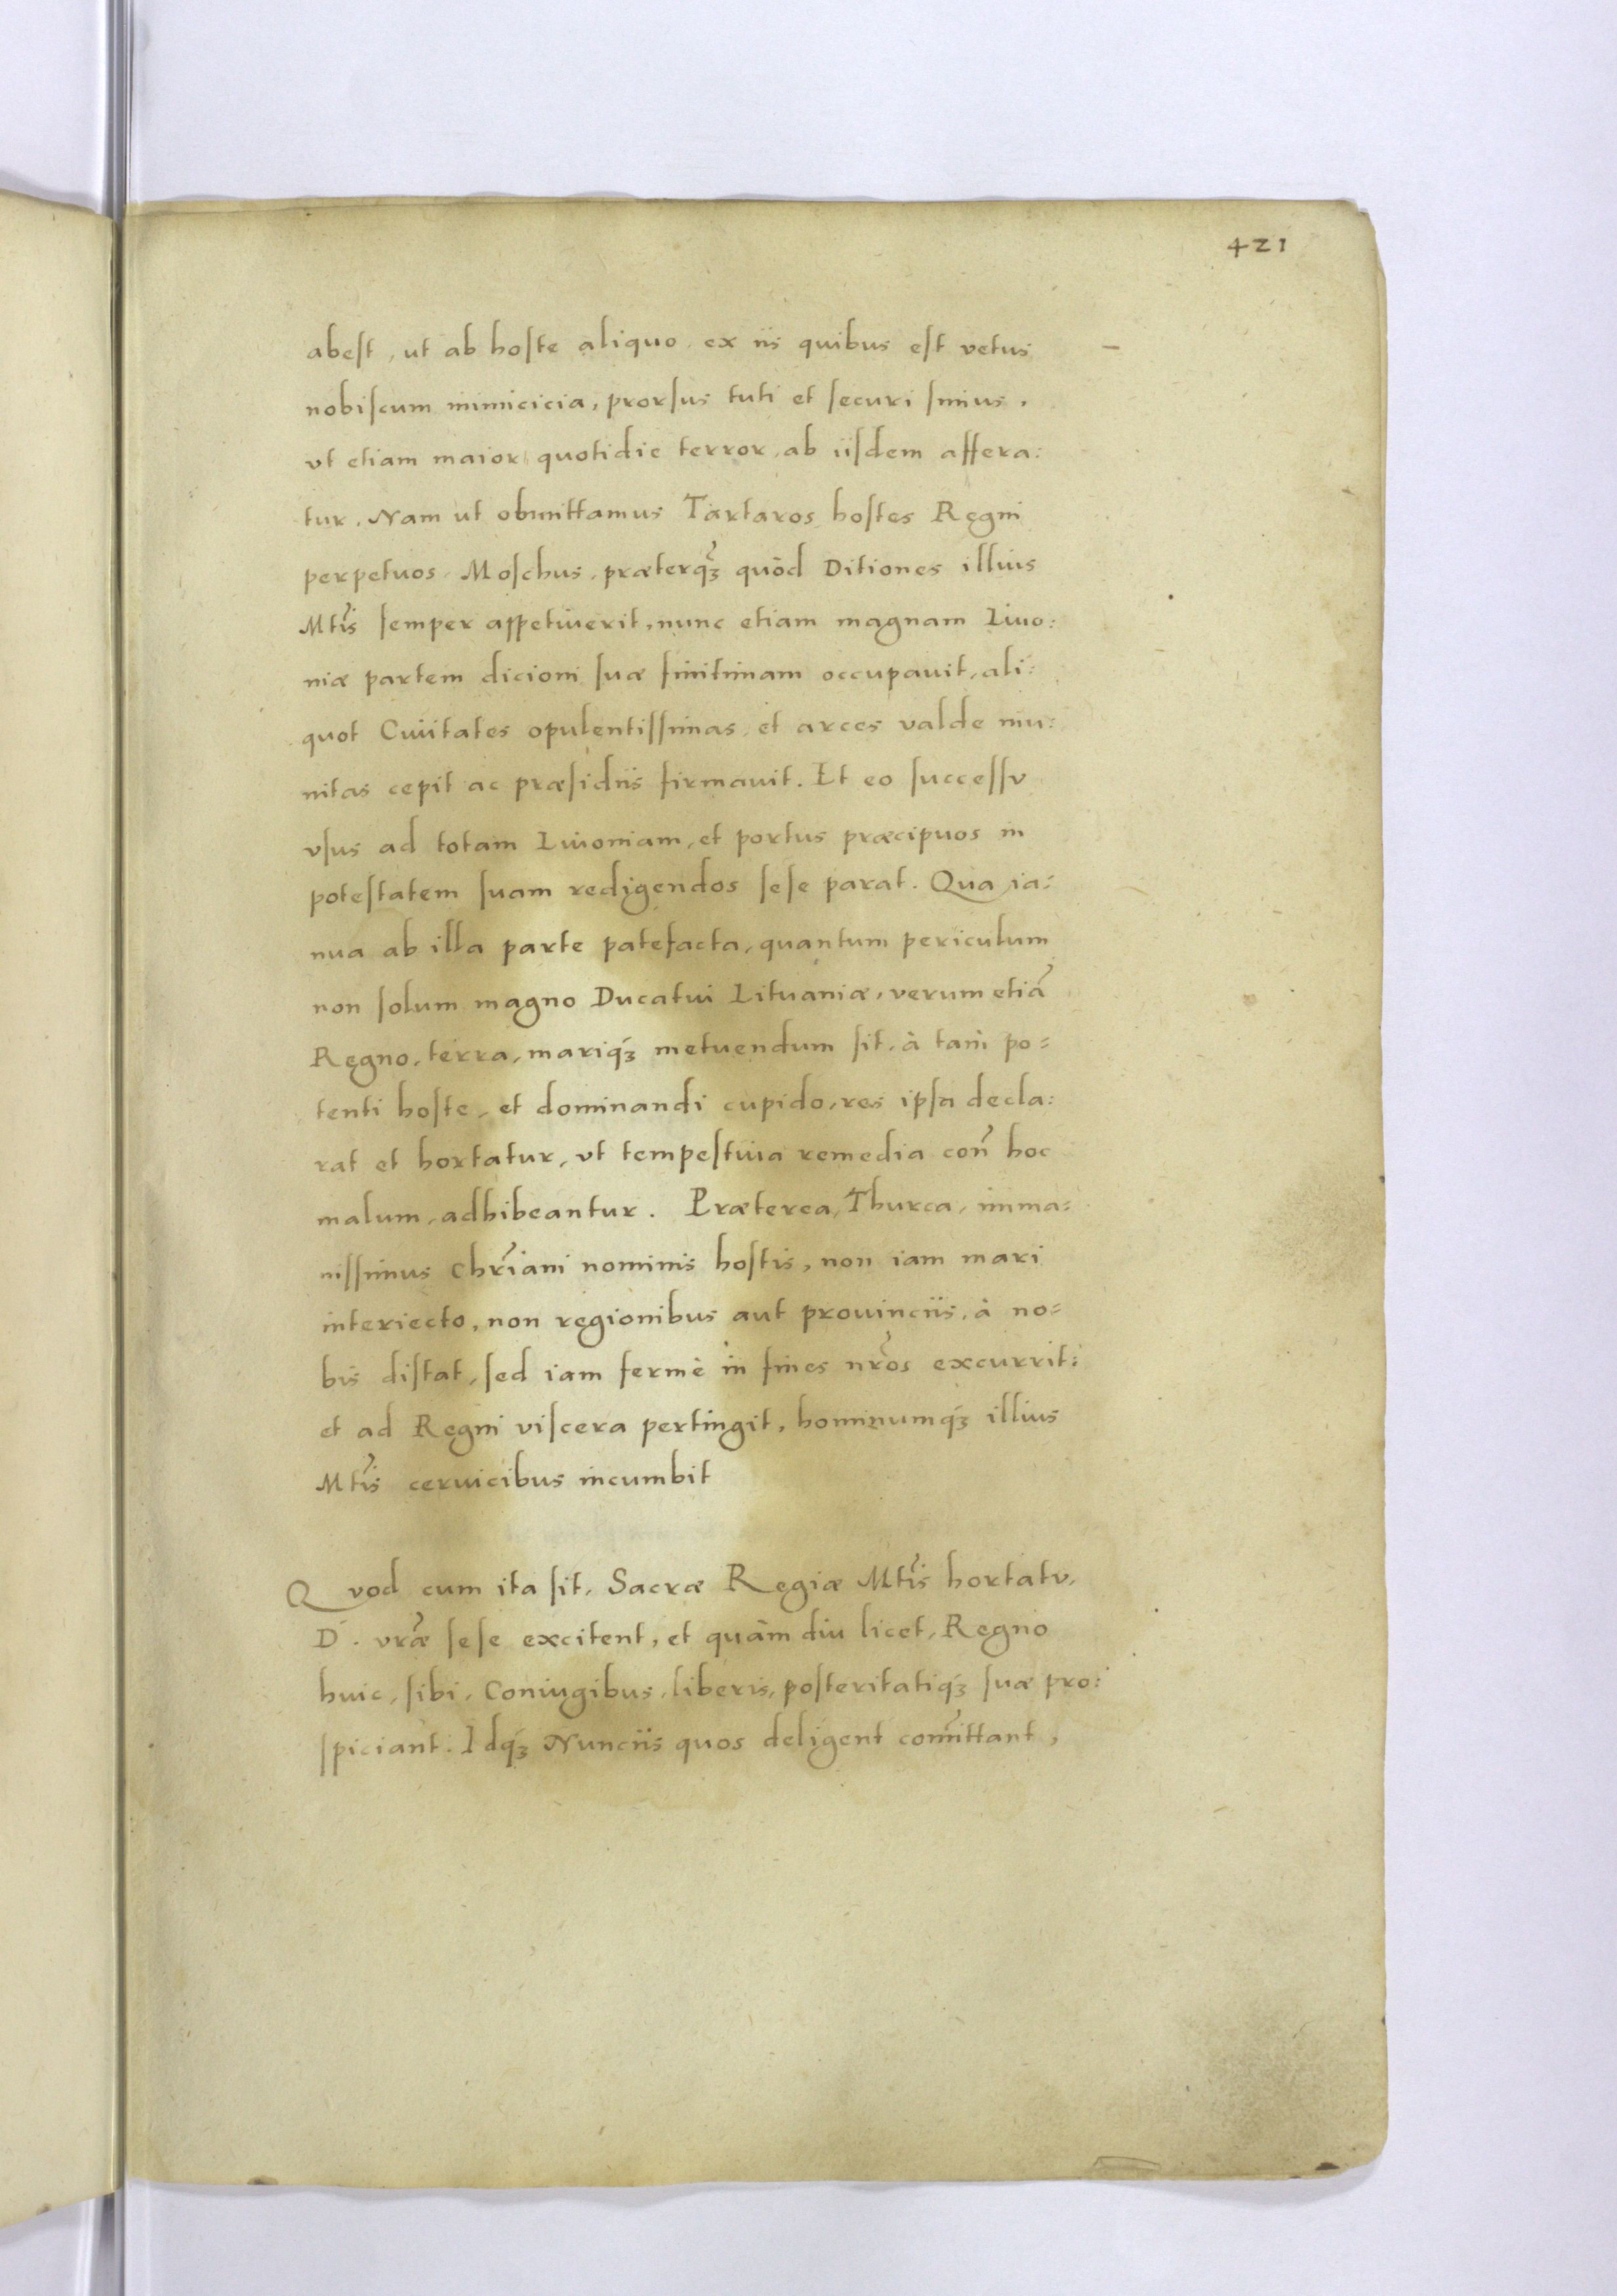 421
abest, ut ab hoste aliquo, ex iis quibus est vetus
nobiscum inimicicia, prorsus tuti et securi simus,
vt etiam maior quotidie terror, ab iisdem affera:
tur. Nam ut obmittamus Tartaros hostes Regni
perpetuos, Moschus, præterq̃ꝫ quòd Ditiones illius
Mtis̃ semper appetiverit, nunc etiam magnam Livo:
niæ partem dicioni suæ finitimam occupavit, ali:
quot Civitates opulentissimas, et arces valde mu:
nitas cepit ac præsidiis firmavit. Et eo successu
vsus ad totam Livoniam, et portus præcipuos in
potestatem suam redigendos sese parat. Qua ia:
nua ab illa parte patefacta, quantum periculum
non solum magno Ducatui Lituaniæ, verum etiã
Regno, terra, mariqꝫ́ metuendum sit, à tam̀ po=
tenti hoste, et dominandi cupido, res ipsa decla:
rat et hortatur, vt tempestiva remedia coñ hoc
malum, adhibeantur. Præterea, Thurca, imma:
nissimus chr̃iani nominis hostis, non iam mari
interiecto, non regionibus aut provinciis, à no=
bis distat, sed iam fermè in fines nr̃os excurrit:
et ad Regni viscera pertingit, hominumqꝫ́ illius
Mtis̃ cervicibus incumbit
Quod cum ita sit, Sacræ Regiæ Mtis̃ hortatu,
D. vr̃æ sese excitent, et quàm diu licet, Regno
huic, sibi, Coniugibus, liberis, posteritatiqꝫ́ suæ pro:
spiciant. Idqꝫ́ Nunciis quos deligent com̃ittant,